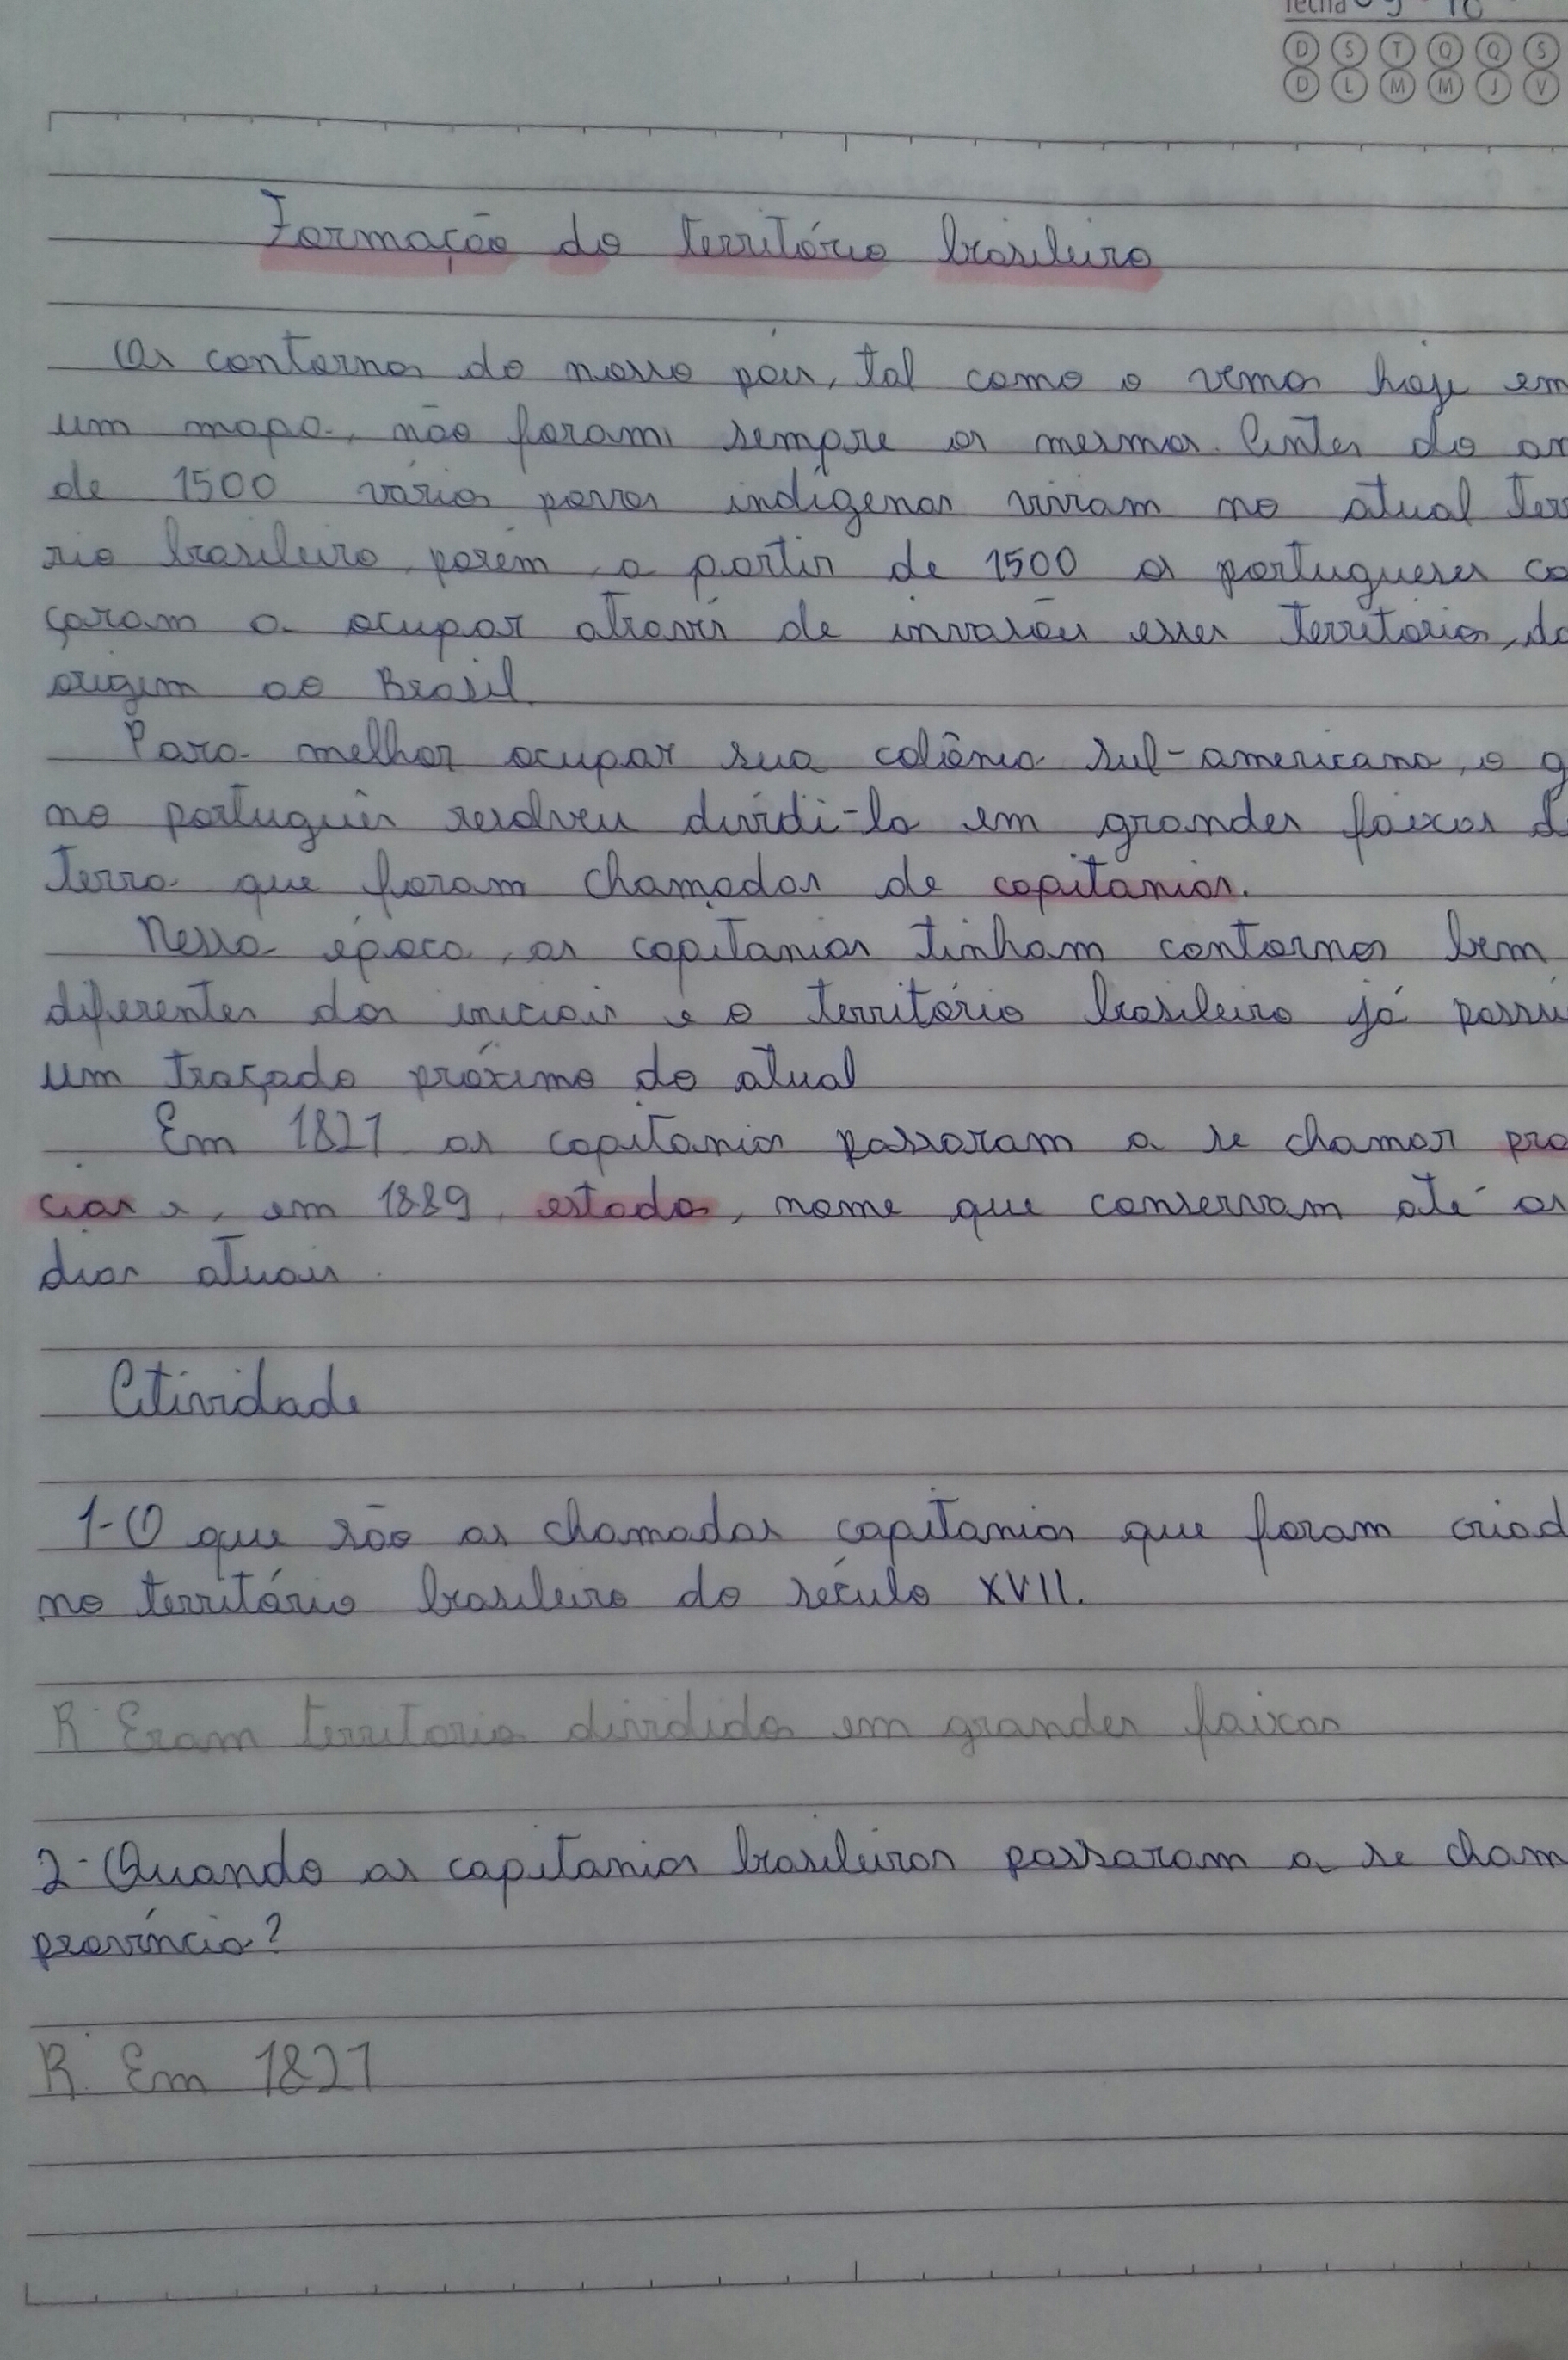 fecha 09 10
D S T Q Q S
D L M M J V
Formação do território brasileiro
Os contornos do nosso país, tal como o vemos hoje em
um mapa, não foram sempre os mesmos. Antes do an
de 1500 vários povos indígenas viviam no atual terr
rio brasileiro, porém, a partir de 1500 os portugueses co
çaram a ocupar através de invasões esses territórios, da
origem ao Brasil.
Para melhor ocupar sua colônia sul-americana, o g
no português resolveu dividi-la em grandes faixas d
terra que foram chamadas de capitanias.
Nessa época, as capitanias tinham contornos bem
diferentes dos iniciais e o território brasileiro já possui
um traçado próximo do atual
Em 1821 as capitanias passaram a se chamar pro
cias e, em 1889, estados, nome que conservam até os
dias atuais.
Atividade
1-O que são as chamadas capitanias que foram criad
no território brasileiro do século XVII.
R. Eram territorios divididos em grandes faixas
2-Quando as capitanias brasileiras passaram a se cham
província?
R. Em 1821